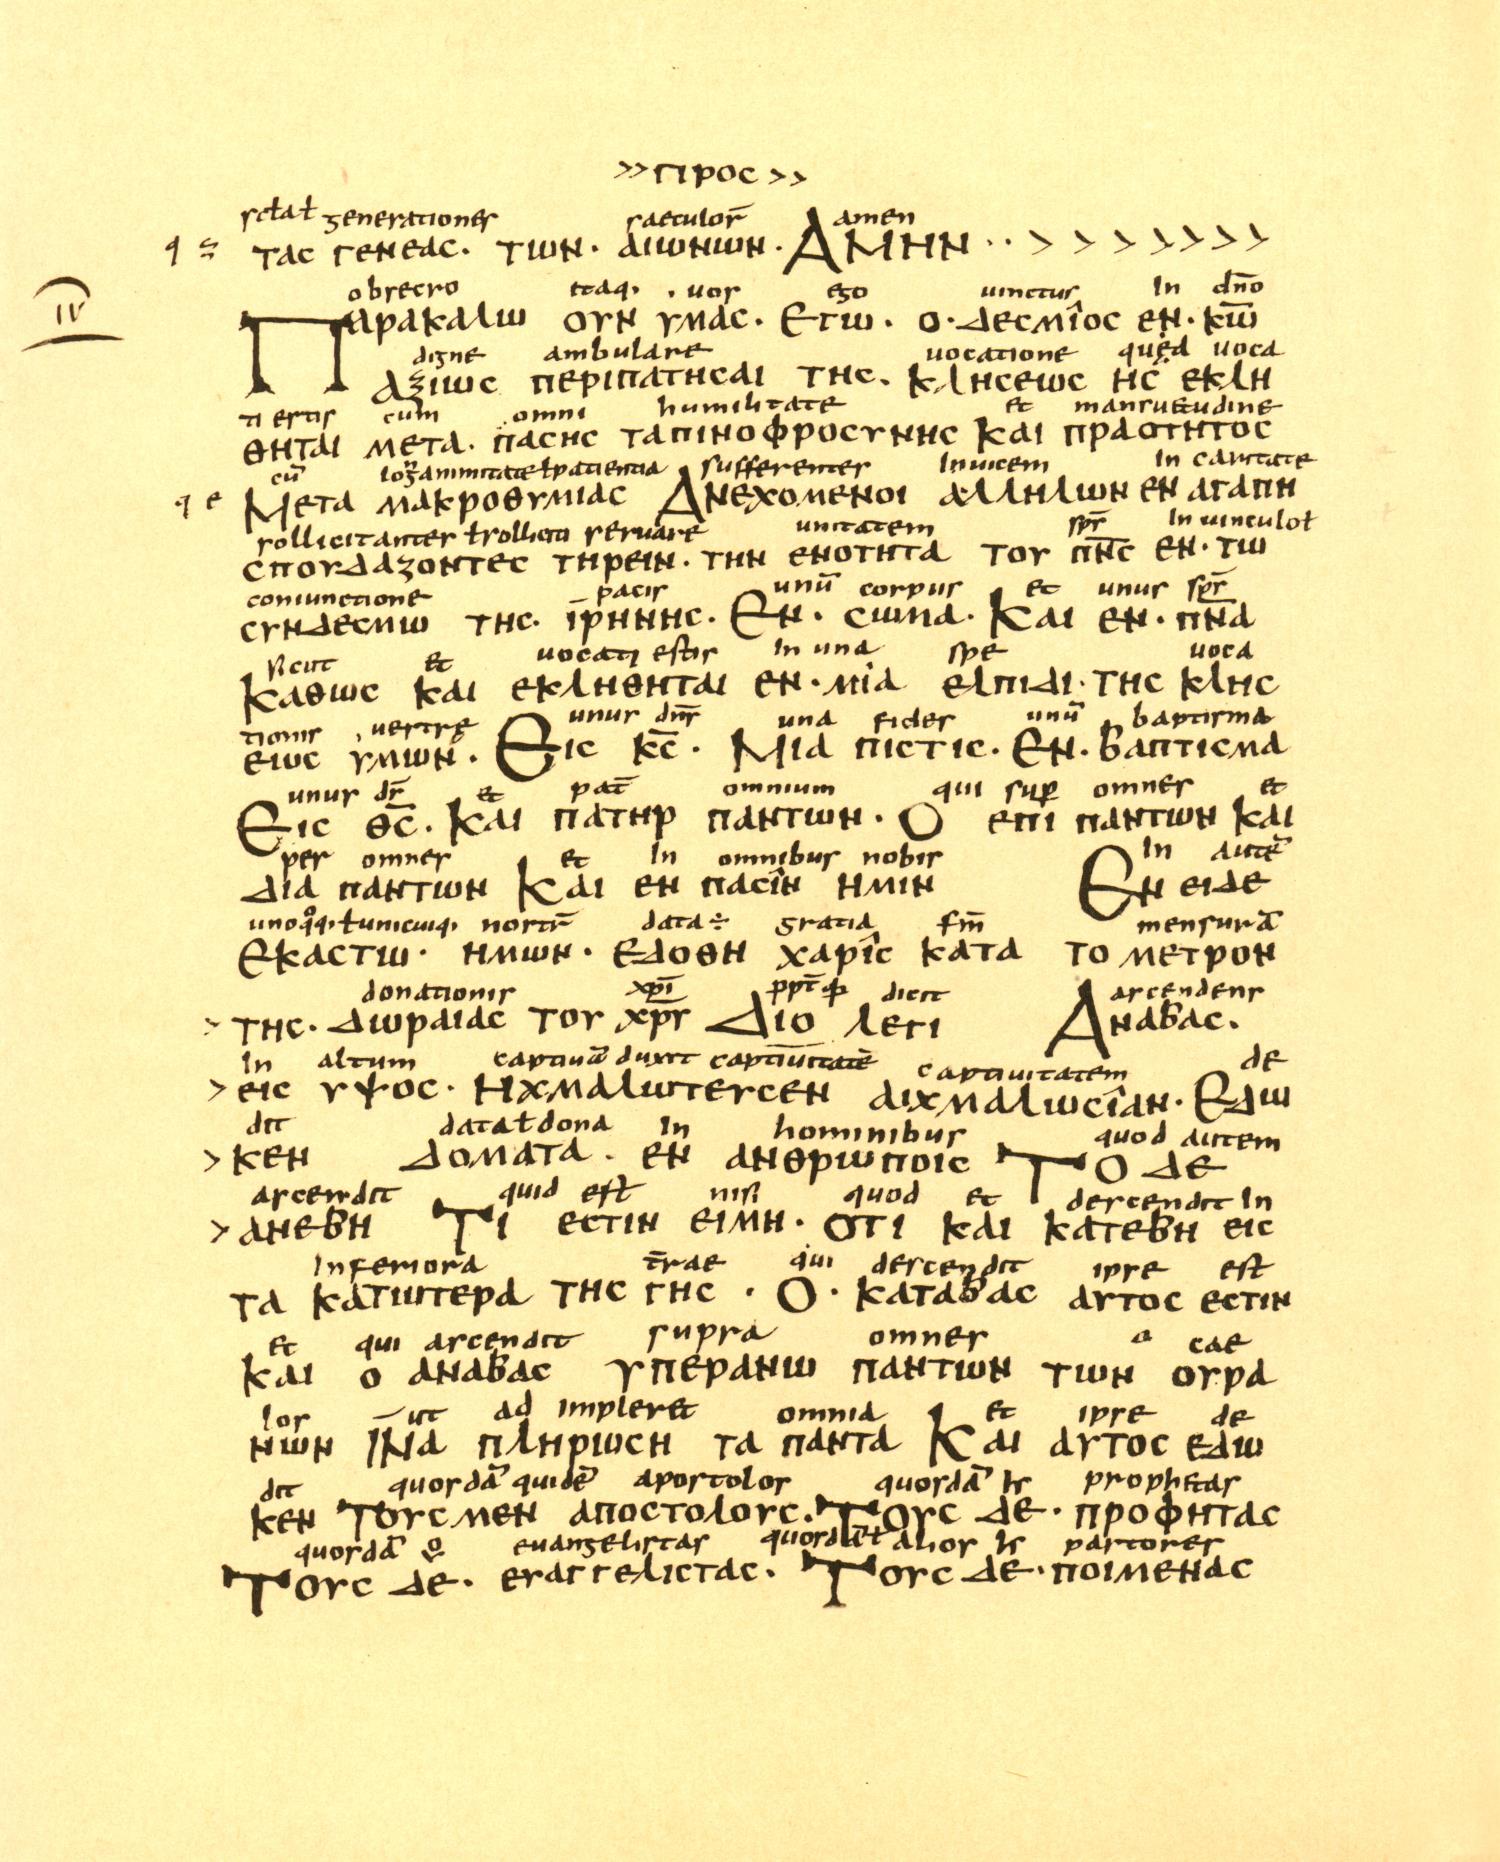 >> προς >>
generationes saeculor̄ amen
τας γενεας. των. αιωνιων. Αμην .. > > > > > > > >
IV
obsecro itaq. uos ego uinctus in dn̄o
Παρακαλω ουν υμας. Εγω. ο. δεσμιος εν. κ̄ω̄
digne ambulare uocatione uoca
αξιως περιπατησαι της. κλησεως ης εκλη
ti estis cum omni humilitate et mansuetudine
θηται μετα. πασης ταπινοφροσυνης Και πραοτητος
cū patientia sufferentes inuicem in caritate
Μετα μακροθυμιας Ανεχομενοι αλληλων εν αγαπη
sollicitanter seruare unitatem sp̄s in uinculo ł
σπουδαζοντες τηρειν. την ενοτητα του π̄ν̄ς εν. τω
coniunctione pacis unū corpus et unus sp̄s
συνδεσμω της. ιρηνης. Εν. σωμα. Και εν. π̄ν̄α
sicut et uocati estis in una spe uoca
Καθως και εκληθηται εν. μια ελπιδι. της κλης
tionis uestrę unus dn̄s una fides unū baptisma
ειως υμων. Εις κ̄ς̄. Μια πιστις. Εν. βαπτισμα
unus d̄s et pat̄ omnium qui sup̄ omnes et
Εις θ̄ς̄. Και πατηρ παντων. Ο επι παντων και
per omnes et in omnibus nobis In autē
δια παντων Και εν πασιν ημιν Εν ειδε
nostr̄ data ÷ gratia mensurā
Εκαστω. ημων. Εδοθη χαρις κατα το μετρον
donationis xp̄i dicit ascendens
της. δωραιας του χρ̄υ Διο λεγι Αναβας.
in altum captiuā duxit captiuitatē captiuitatem de
> εις υψος. Ηχμαλωτευσεν αιχμαλωσιαν. Εδω
dit data ł dona in hominibus quod autem
> κεν δοματα. εν ανθρωποις Το δε
ascendit quid est nisi quod et descendit in
> ανεβη Τι εστιν ειμη. οτι και κατεβη εις
inferiora t̄rae qui descendit ipse est
τα κατωτερα της γης. Ο. καταβας αυτος εστιν
et qui ascendit supra omnes cae
και ο αναβας υπερανω παντων των ουρα
los ut ad impleret omnia et ipse de
νων ΙΝα πληρωση τα παντα Και αυτος εδω
dit quosdā quidē apostolos quosdā prophetas
κεν Τους μεν αποστολους. Τους δε. προφητας
quosdā euangelistas quosdā ł alios pastores
Τους δε. ευαγγελιστας. Τους δε. ποιμενας